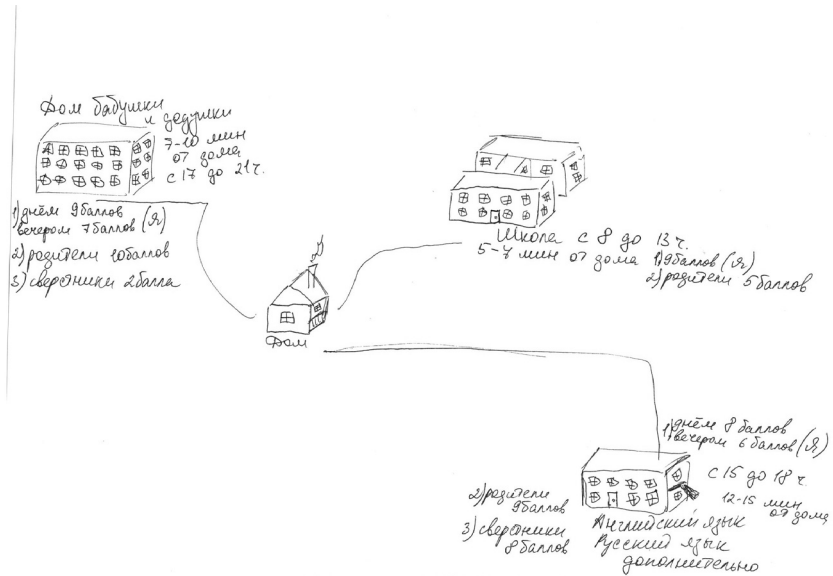 Дом бабушки
и дедушки
7-10 мин
от дома
с 17 до 21 ч.
1) днём 9 баллов
вечером 7 баллов (Я)
2) родители 10 баллов
3) сверстники 2 балла
Школа с 8 до 13 ч.
5-7 мин от дома 1) 9 баллов (Я)
2) родители 5 баллов
Дом
1) днём 8 баллов
вечером 6 баллов (Я)
с 15 до 18 ч.
12-15 мин
от дома
2) родители
9 баллов
3) сверстники
8 баллов
Английский язык
Русский язык
дополнительно